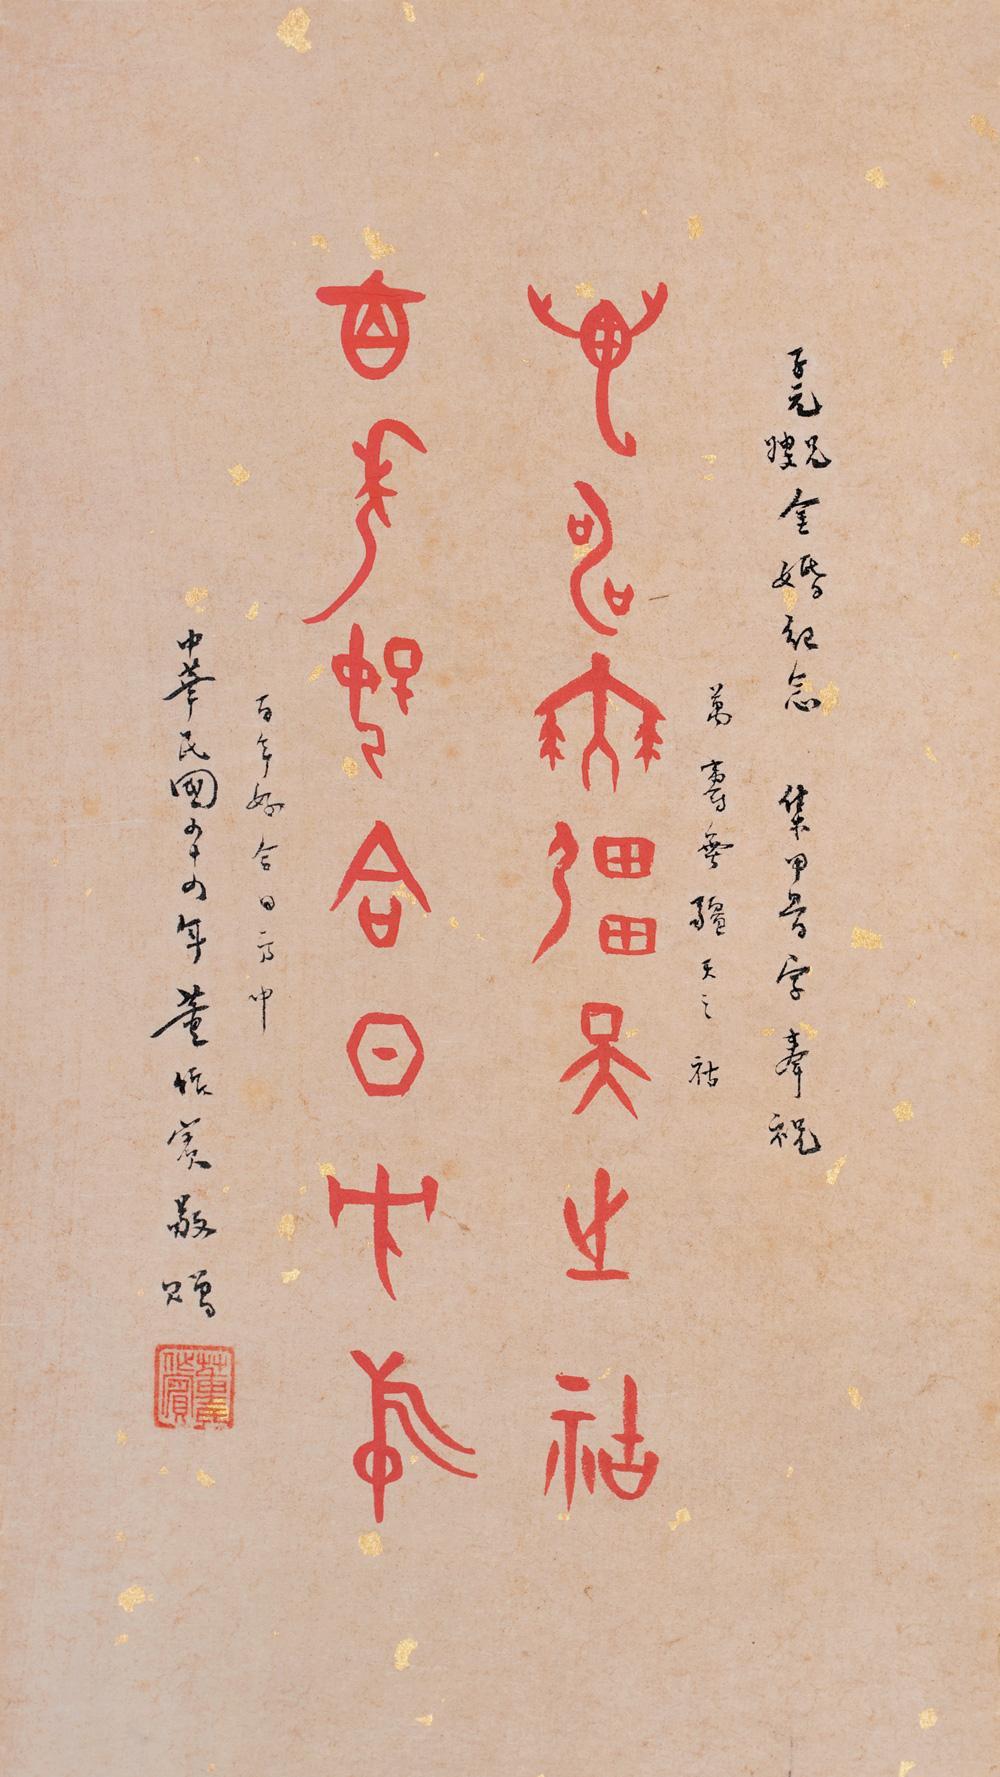 子元兄嫂金婚紀念 集甲骨字奉祝
萬壽無疆天之祜
萬壽無疆天之祜
百年好合日方中
百年好合日方中
中華民國五十四年 董作賓敬贈
董作賓